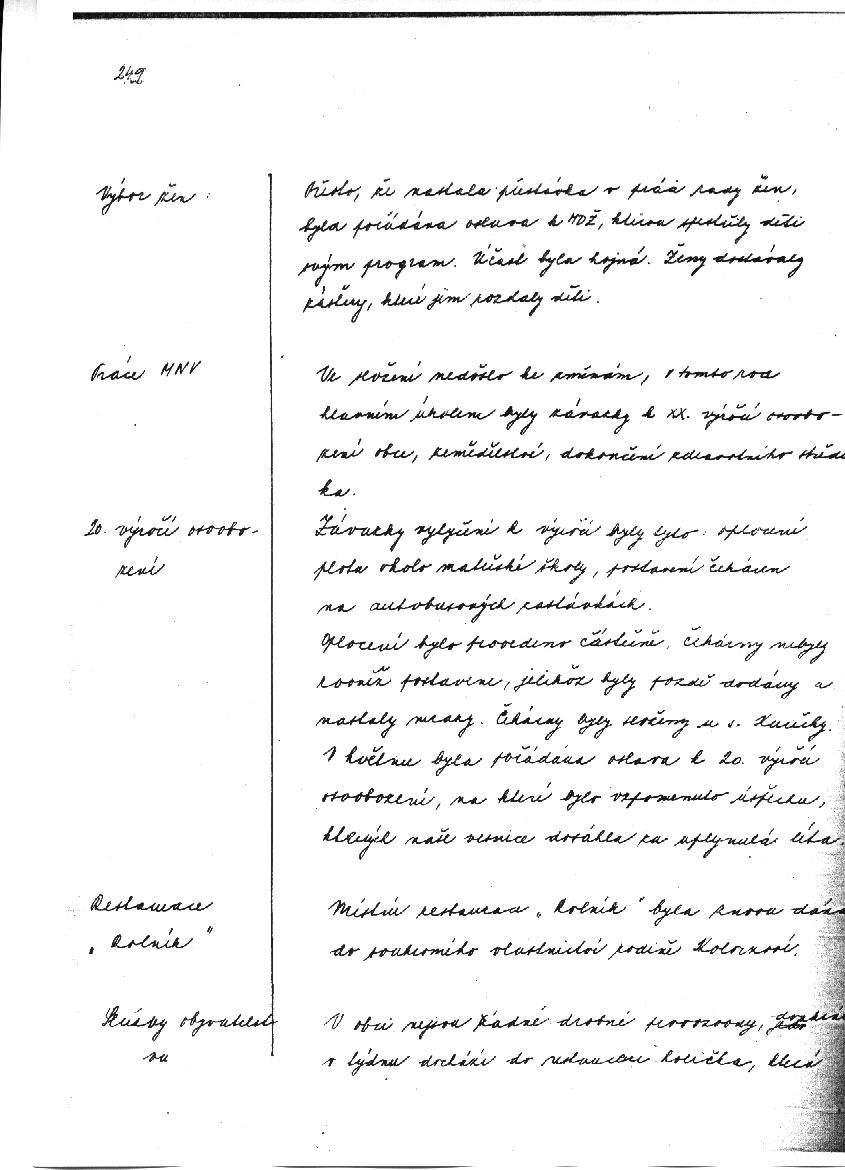 249
Výbor žen :
Přesto, že nastala přestávka v práci rady žen,
byla pořádána oslava k MDŽ, kterou zpestřily děti
svým program. Účast byla hojná. Ženy dostávaly
zástěry, které jim rozdaly děti.
Práce MNV
Ve složení nedošlo ke změnám, v tomto roce
hlavním úkolem byly závazky k XX. výročí osvobo-
zení obce, zemědělství, dokončení zdravotního středis
ka.
20. výročí osvobo-
zení
Závazky vytyčené k výročí byly tyto: oplocení
plotu okolo mateřské školy, postavení čekáren
na autobusových zastávkách.
Oplocení bylo provedeno částečně, čekárny nebyly
rovněž postavene, jelikož byly pozdě dodány a
nastaly mrazy. Čekárny byly složeny u s.
V květnu byla pořádána oslava k 20. výročí
osvobození, na které bylo vzpomenuto úspěchu,
kterých naše vesnice dosáhla za uplynulá léta.
Restaurace
„Rolník"
Místní restauraci „Rolník" byla znovu dána
do soukromého vlastnictví rodině
Služby obyvatelst
va
V obci nejsou žádné drobné provozovny,
v týdnu dochází do restaurace holička, která